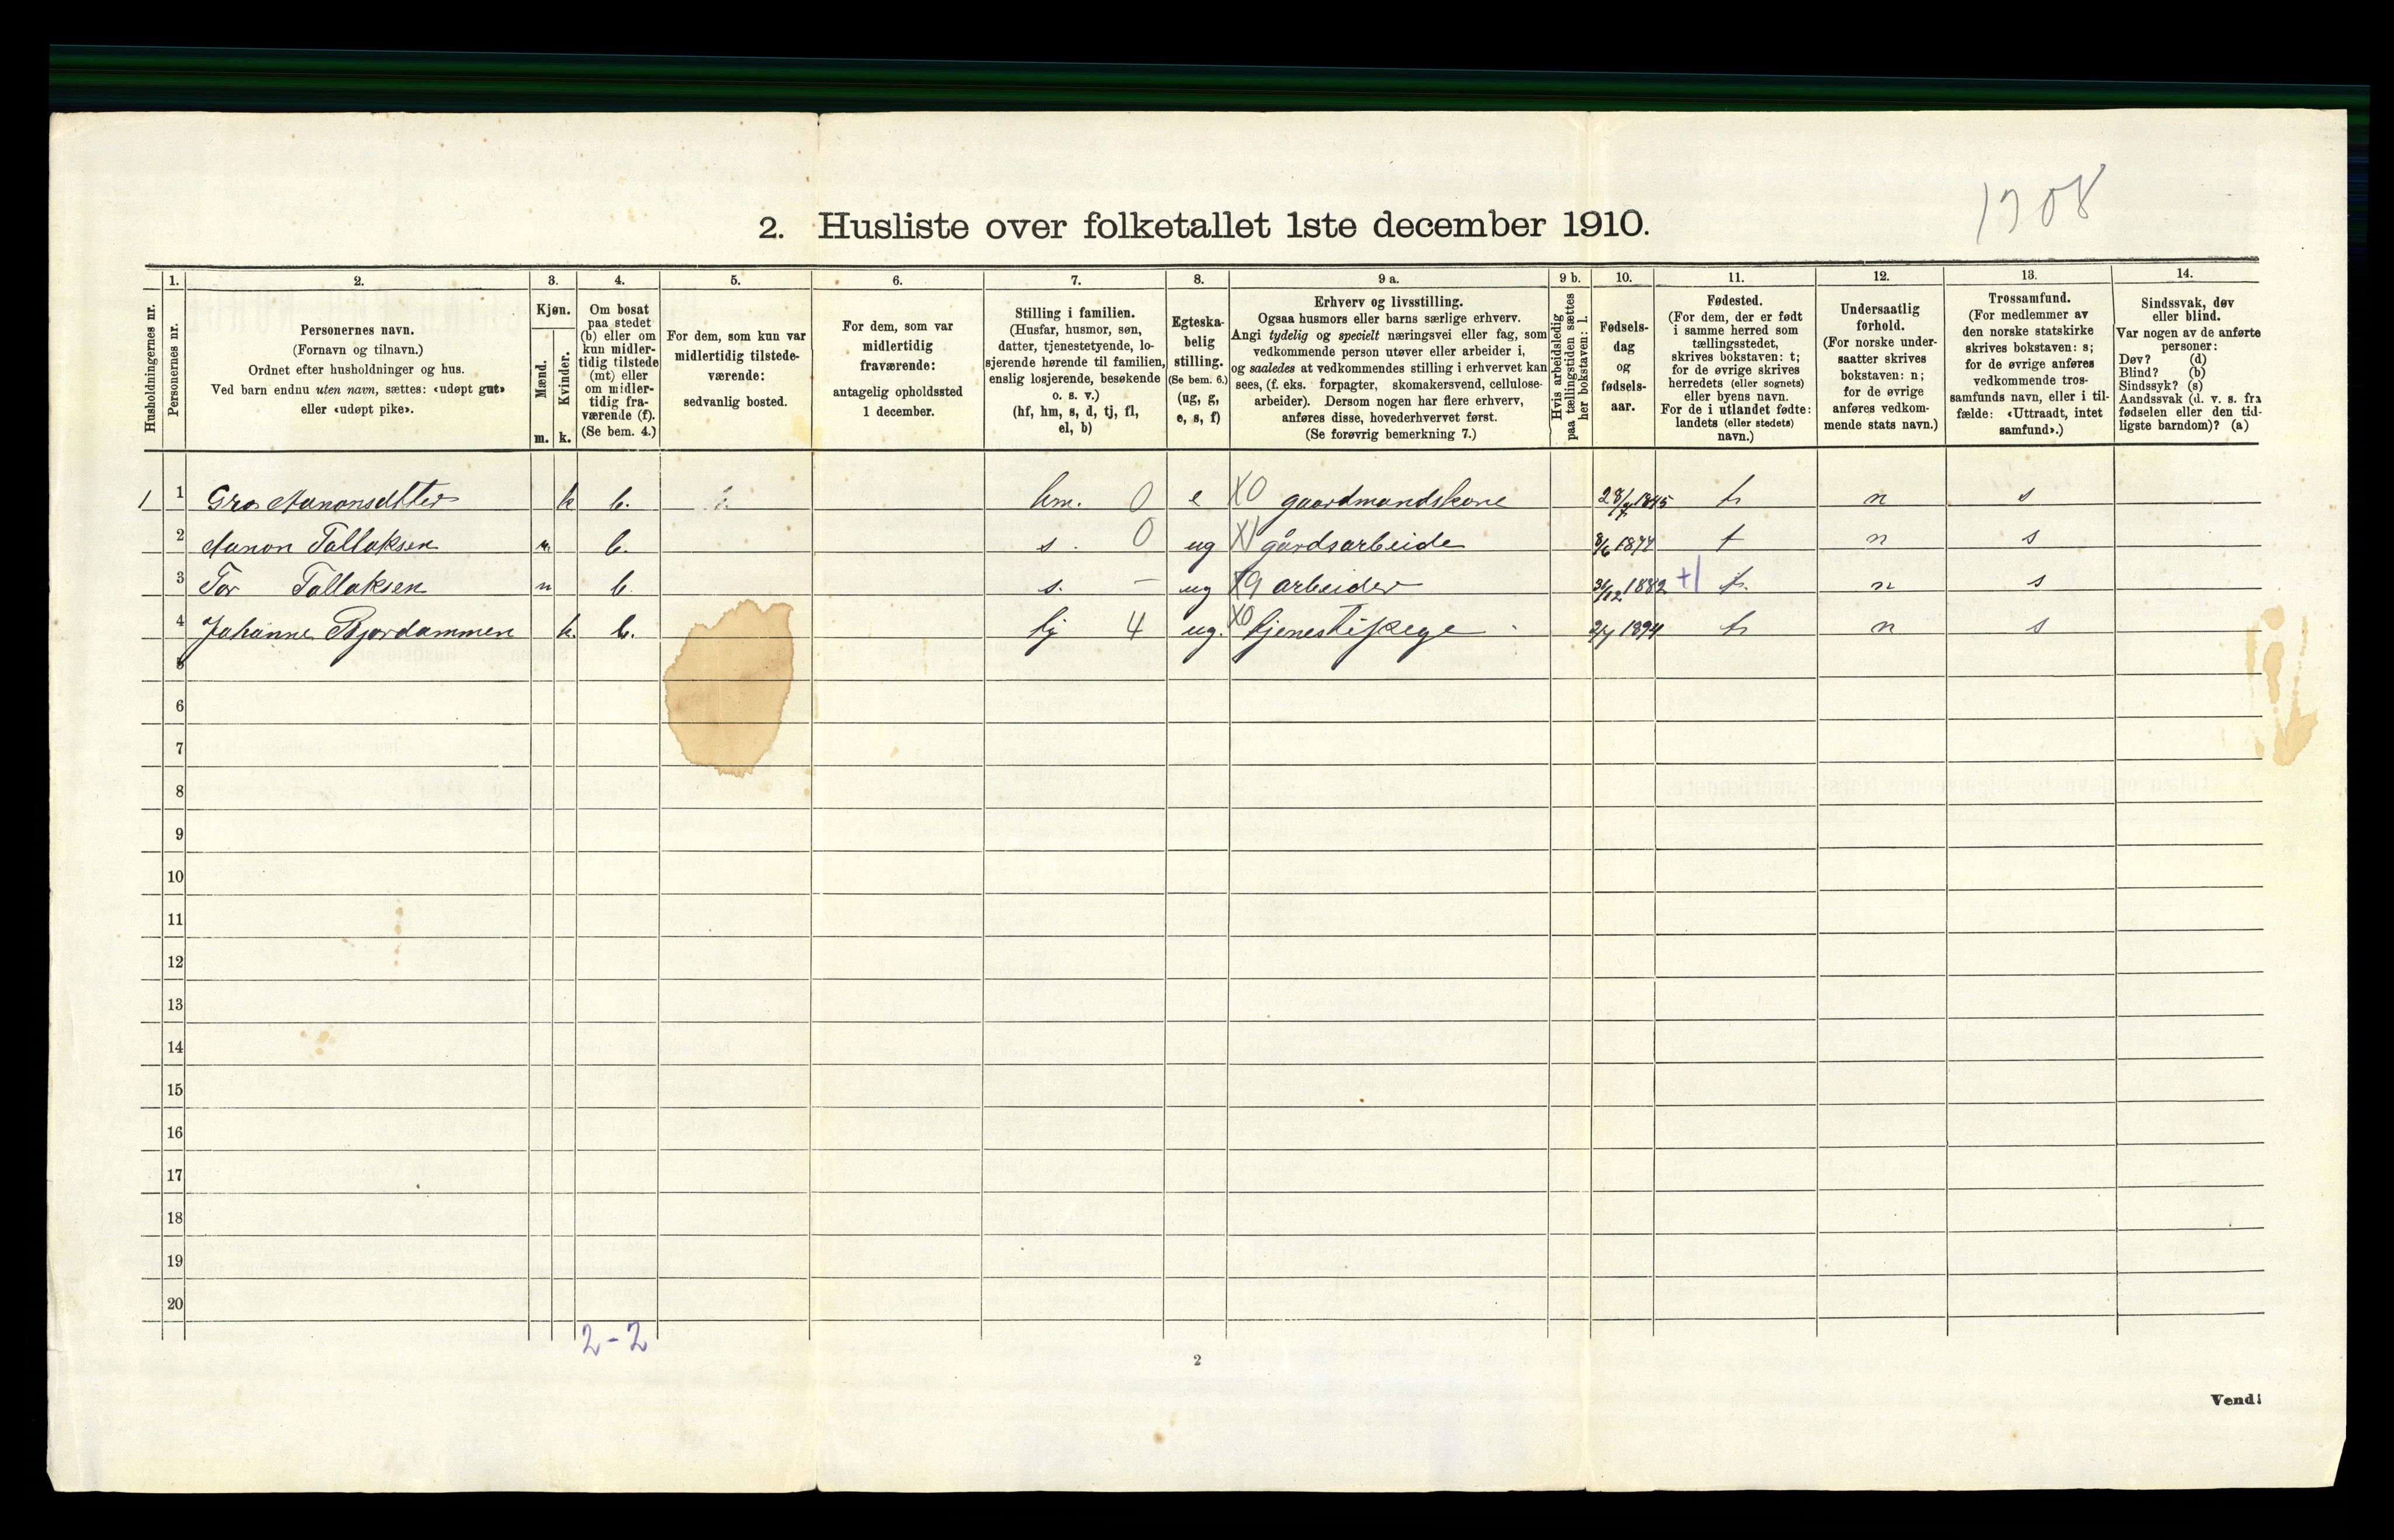 1708
2. Husliste over folketallet 1ste december 1910.
1. 2. 3. 4. 5. 6. 7. 8. 9 a. 9 b. 10. 11. 12. 13. 14.
Husholdningernes nr.
Personernes nr.
Personernes navn.
(Fornavn og tilnavn.)
Ordnet efter husholdninger og hus.
Ved barn endnu uten navn, sættes: «udøpt gut»
eller «udøpt pike».
Kjøn.
Mænd.
Kvinder.
m. k.
Om bosat
paa stedet
(b) eller om
kun midler-
tidig tilstede
(mt) eller
om midler-
tidig fra-
værende (f).
(Se bem. 4.)
For dem, som kun var
midlertidig tilstede-
værende:
sedvanlig bosted.
For dem, som var
midlertidig
fraværende:
antagelig opholdssted
1 december.
Stilling i familien.
(Husfar, husmor, søn,
datter, tjenestetyende, lo-
sjerende hørende til familien,
enslig losjerende, besøkende
o. s. v.)
(hf, hm, s, d, tj, fl,
el, b)
Egteska-
belig
stilling.
(Se bem. 6.)
(ug, g,
e, s, f)
Erhverv og livsstilling.
Ogsaa husmors eller barns særlige erhverv.
Angi tydelig og specielt næringsvei eller fag, som
vedkommende person utøver eller arbeider i,
og saaledes at vedkommendes stilling i erhvervet kan
sees, (f. eks. forpagter, skomakersvend, cellulose-
arbeider). Dersom nogen har flere erhverv,
anføres disse, hovederhvervet først.
(Se forøvrig bemerkning 7.)
Hvis arbeidsledig
paa tællingstiden sættes
her bokstaven: l.
Fødsels-
dag
og
fødsels-
aar.
Fødested.
(For dem, der er født
i samme herred som
tællingsstedet,
skrives bokstaven: t;
for de øvrige skrives
herredets (eller sognets)
eller byens navn.
For de i utlandet fødte:
landets (eller stedets)
navn.)
Undersaatlig
forhold.
(For norske under-
saatter skrives
bokstaven: n;
for de øvrige
anføres vedkom-
mende stats navn.)
Trossamfund.
(For medlemmer av
den norske statskirke
skrives bokstaven: s;
for de øvrige anføres
vedkommende tros-
samfunds navn, eller i til-
fælde: «Uttraadt, intet
samfund».)
Sindssvak, døv
eller blind.
Var nogen av de anførte
personer:
Døv? (d)
Blind? (b)
Sindssyk? (s)
Aandssvak (d. v. s. fra
fødselen eller den tid-
ligste barndom)? (a)
1 1 Gro Aanonsdtter k b. hm. 0 e X0 gaardmandskone 1845 t n s
2 Aanon Tallaksen m b. s. 0 ug X1 gårdsarbeide 8/6 1877 t n s
3 Tor Tallaksen m b. s. – ug X9 arbeider 31/12 1882 +1 t. n s
4 Johanne Bjordammen k. b. tj 4 ug. X0 tjenestipege 2/7 1894 t n s
5
6
7
8
9
10
11
12
13
14
15
16
17
18
19
20
2-2
2
Vend!